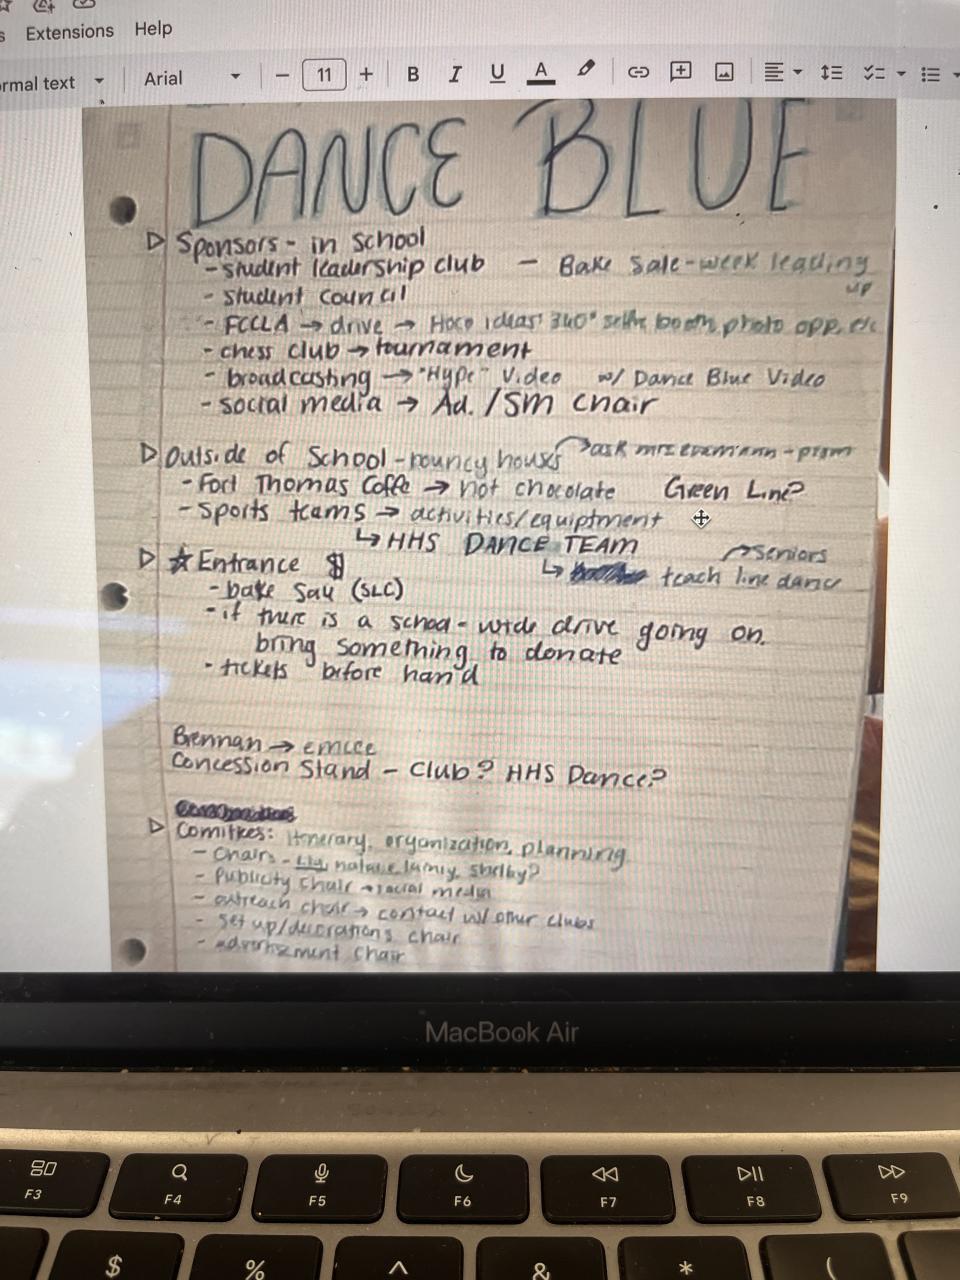 Extensions Help
Arial
11
B I U A
DANCE BLUE
Sponsors - in school
- student leadership club - Bake Sale - week leading up
- student council
- FCCLA → drive → Hoco ideas: 360° selfie booth, photo opp, etc
- chess club → tournament
- broadcasting → "Hype" Video w/ Dance Blue Video
- social media → Ad. / SM chair
Outside of School - bouncy houses → ask mrs - prom
- Fort Thomas Coffe → hot chocolate Green Line?
- sports teams → activities/equiptment
↳ HHS DANCE TEAM → seniors
☆ Entrance $ ↳ teach line dance
- bake sale (SLC)
- if there is a school-wide drive going on,
bring something to donate
- tickets before hand
Brennan → emcee
Concession Stand - Club? HHS Dance?
Comittees: Itinerary, organization, planning
- Chairs - Lily, shelby?
- Publicity Chair → social media
- outreach chair → contact w/ other clubs
- set up/decorations chair
- advertisment chair
MacBook Air
F3 F4 F5 F6 F7 F8 F9
$ % ^ & * (